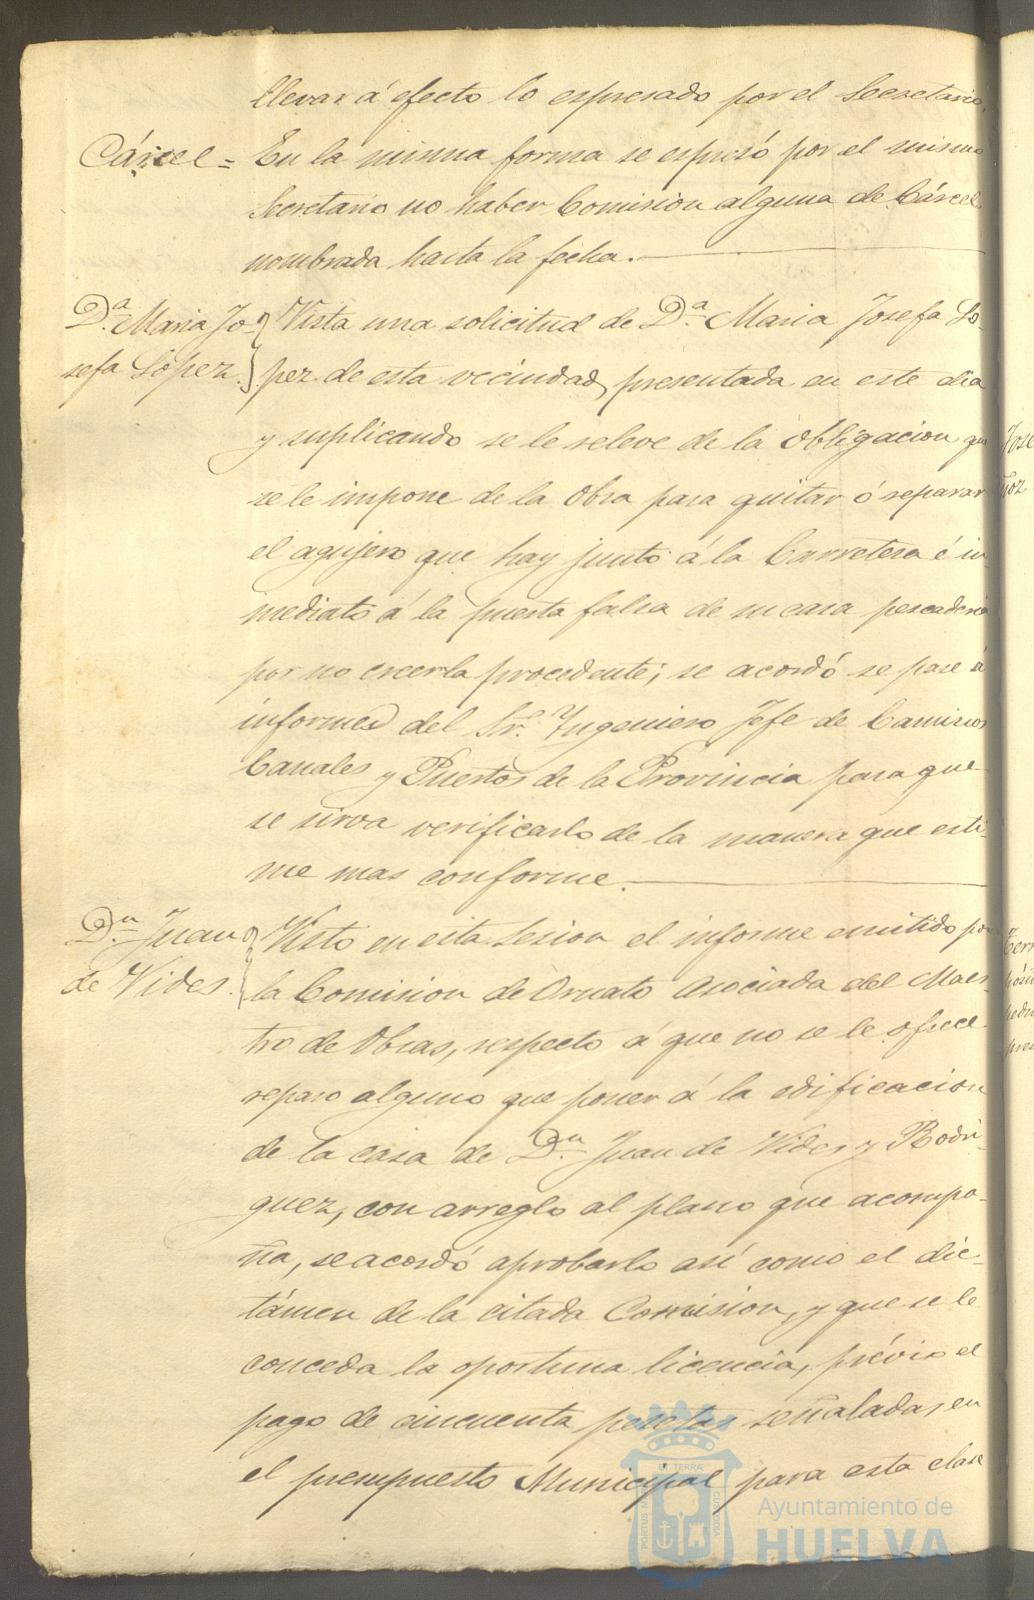 llevar á efecto lo espresado por el Secretario.
Cárcel = En la misma forma se espresó por el mismo
Secretario no haber Comision alguna de Cárcel
nombrada hasta la fecha.
D.ª Maria Jo- Vista una solicitud de D.ª Maria Josefa Lo-
sefa Lopez. pez de esta vecindad, presentada en este dia
y suplicando se le releve de la obligacion que
se le impone de la obra para quitar ó reparar
el agujero que hay junto á la Carretera é in-
mediato á la puerta falsa de su casa pescaderia
por no creerla procedente; se acordó se pase á
informe del Sr. Ingeniero Jefe de Caminos
Canales y Puertos de la Provincia para que
se sirva verificarlo de la manera que esti-
me mas conforme.
D.n Juan Visto en esta Sesion el informe emitido por
de Vides. la Comision de Ornato asociada del Maes-
tro de Obras, respecto á que no se le ofrece
reparo alguno que poner á la edificacion
de la casa de D.n Juan de Vides y Rodri-
guez, con arreglo al plano que acompa-
ña, se acordó aprobarlo así como el dic-
támen de la citada Comision, y que se le
conceda la oportuna licencia, prévio el
pago de cincuenta pesetas señaladas en
el presupuesto Municipal para esta clase
Ayuntamiento de
HUELVA